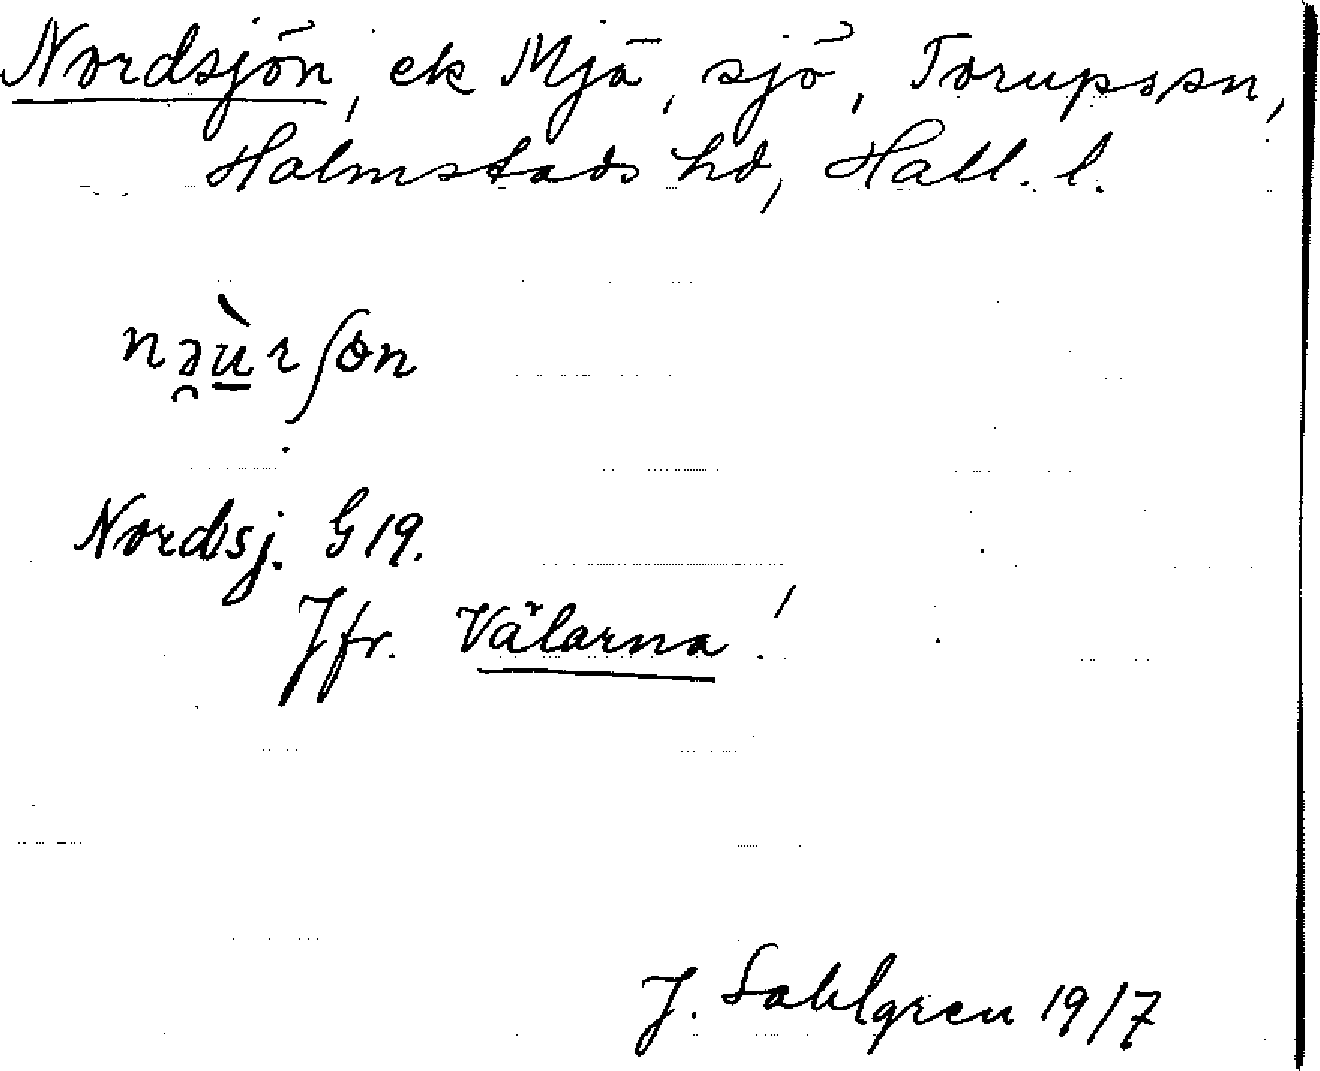 Nordsjön, ek Mjä, sjö, Torupssn,
Halmstads hd, Hall. l.
nə̯ùrʃɵn
Nordsj. G 19.
Jfr. Välarna!
J. Sahlgren 1917